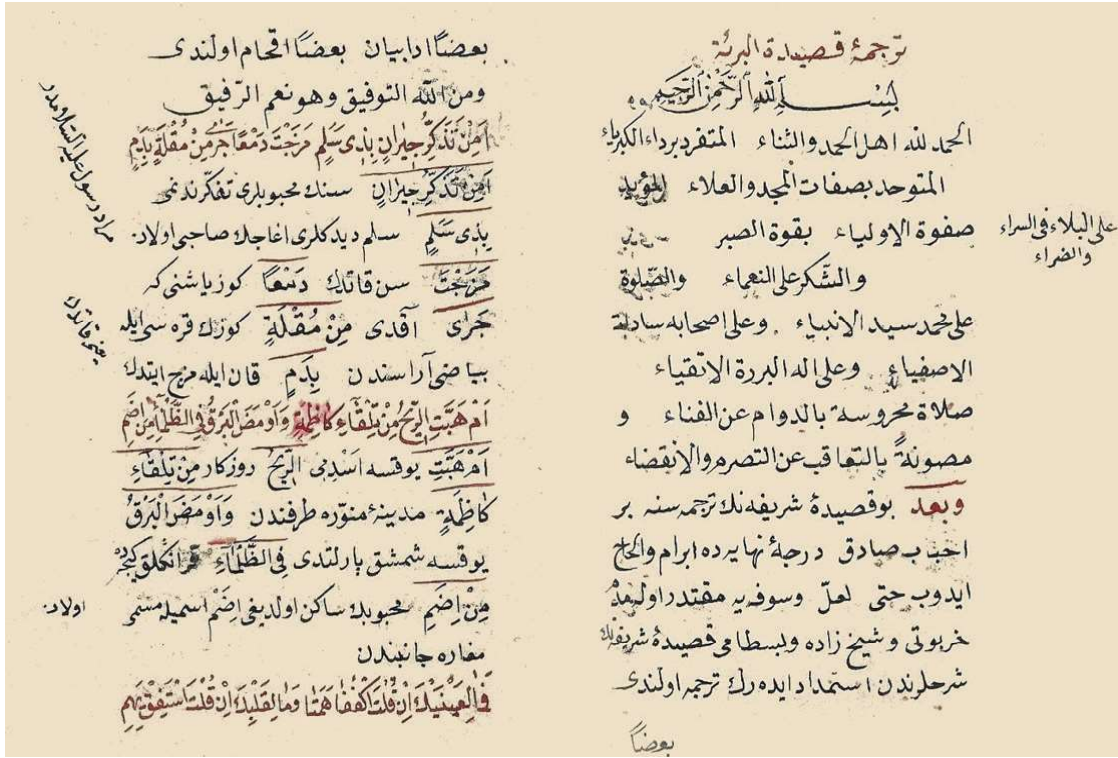 ترجمۀ قصيدة البرئة
بِسْــمِ ٱللّٰهِ ٱلرَّحْمٰنِ ٱلرَّحِيمِ
الحمد لله اهل الحمد والثناء المتفرد برداء الكبرياء
المتوحد بصفات المجد والعلاء المؤيد
صفوة الاولياء بقوة الصبر
على البلاء فى السراء
والضراء
والشّكر على النعماء والصّلوة
على محمد سيد الانبياء وعلى اصحابه سادة
الاصفياء وعلى اله البررة الاتقياء
صلاة محروسة بالدوام عن الفناء و
مصونةً بالتعاقب عن التصرم والانقضاء
وبعد بو قصيدۀ شريفه نك ترجمه سنه بر
احباب صادق درجۀ نهايه ده ابرام والحاح
ايدوب حتى لعلّ وسوفه يه مقتدر
خربوتى وشيخ زاده وبسطامى قصيدۀ شريفه نك
شرحلرندن استمداد ايده رك ترجمه اولندى
بعضاً
بعضاً ادا بيان بعضاً اقحام اولندى
ومن الله التوفيق وهو نعم الرّفيق
اَمِنْ تَذَكُّرِ جِيرَانٍ بِذِى سَلَمٍ مَزَجْتَ دَمْعًا جَرٰى مِنْ مُقْلَةٍ بِدَمٍ
اَمِنْ تَذَكُّرِ جِيرَانٍ سنك محبوبلرى تفكّرندنمى
بِذِى سَلَمٍ سلم ديدكلرى اغاجك صاحبى اولان
مَزَجْتَ سن قاتدك دَمْعًا كوز ياشنى كه
جَرٰى آقدى مِنْ مُقْلَةٍ كوزك قره سى ايله
بياضى آراسندن بِدَمٍ قان ايله مزج ايتدك
اَمْ هَبَّتِ الرّٖيحُ مِنْ تِلْقَاءِ كَاظِمَةٍ وَاَوْمَضَ الْبَرْقُ فِى الظَّلْمَاءِ مِنْ اِضَمِ
اَمْ هَبَّتِ يوقسه اسدىمى الرّٖيحُ روزكار مِنْ تِلْقَاءِ
كَاظِمَةٍ مدينۀ منوّره طرفندن وَاَوْمَضَ الْبَرْقُ
يوقسه شمشق پارلتدى فِى الظَّلْمَاءِ قرانكلق كيجه ده
مِنْ اِضَمِ محبوبك ساكن اولديغى اِضَم اسميله مسمى
اولان
مغاره جانبندن
فَمَا لِعَيْنَيْكَ اِنْ قُلْتَ اكْفُفَا هَمَتَا وَمَا لِقَلْبِكَ اِنْ قُلْتَ اسْتَفِقْ يَهِمِ
مراد رسول عليه السلامدر